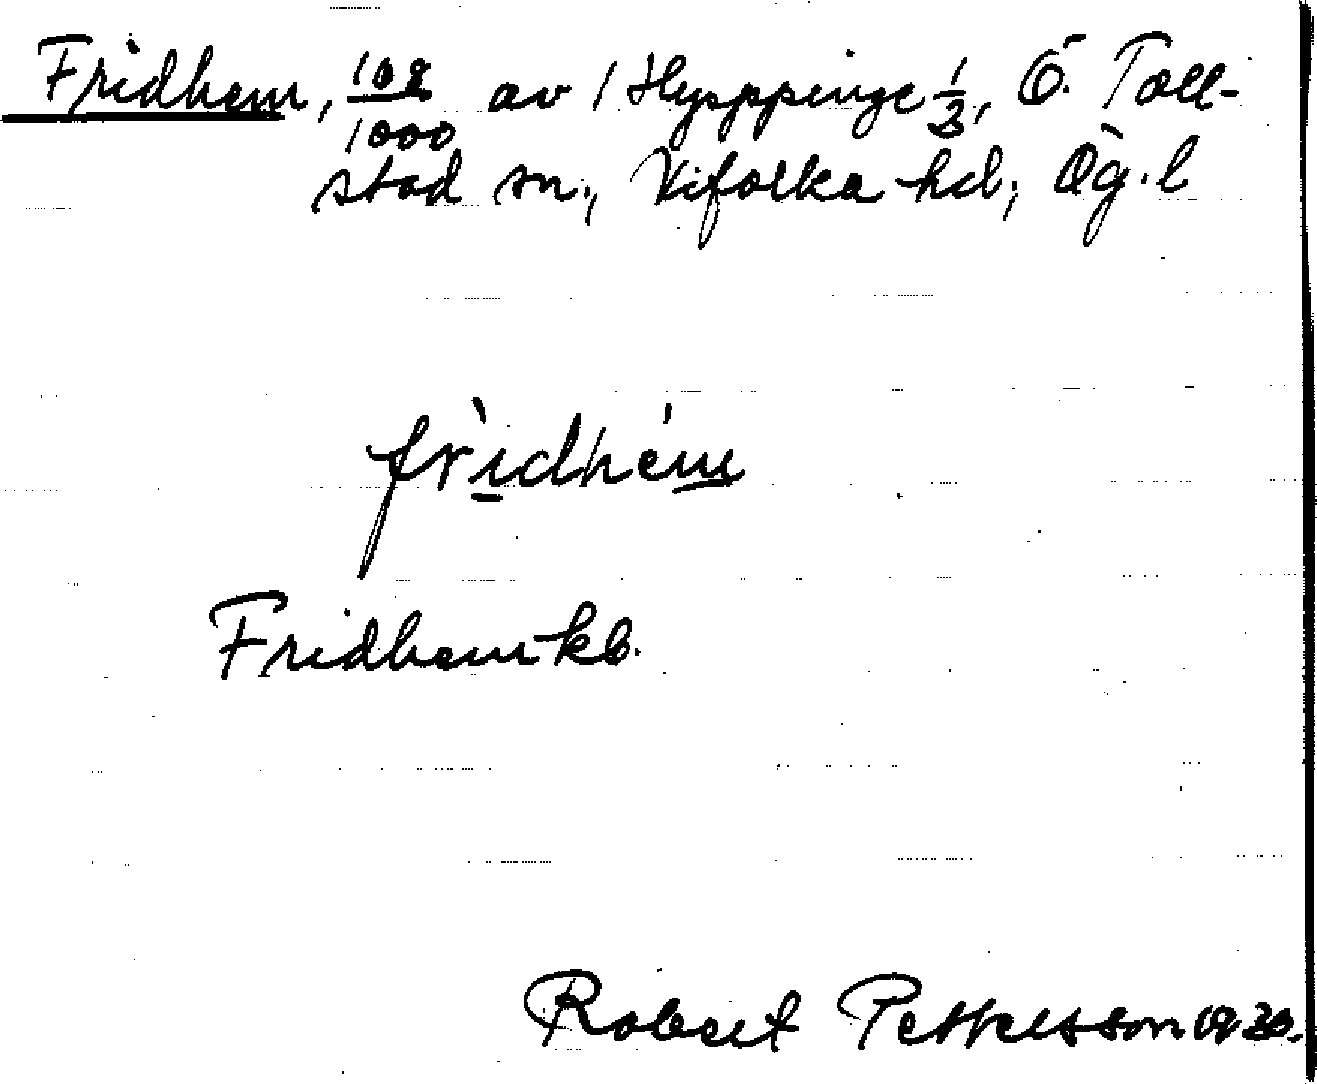 Fridhem, 108/1000 av 1 Hyppinge 1/3, Ö. Toll-
stad sn., Vifolka hd, Ög. l
fri̱dhem
Fridhem kb.
Robert Pettersson 1930.